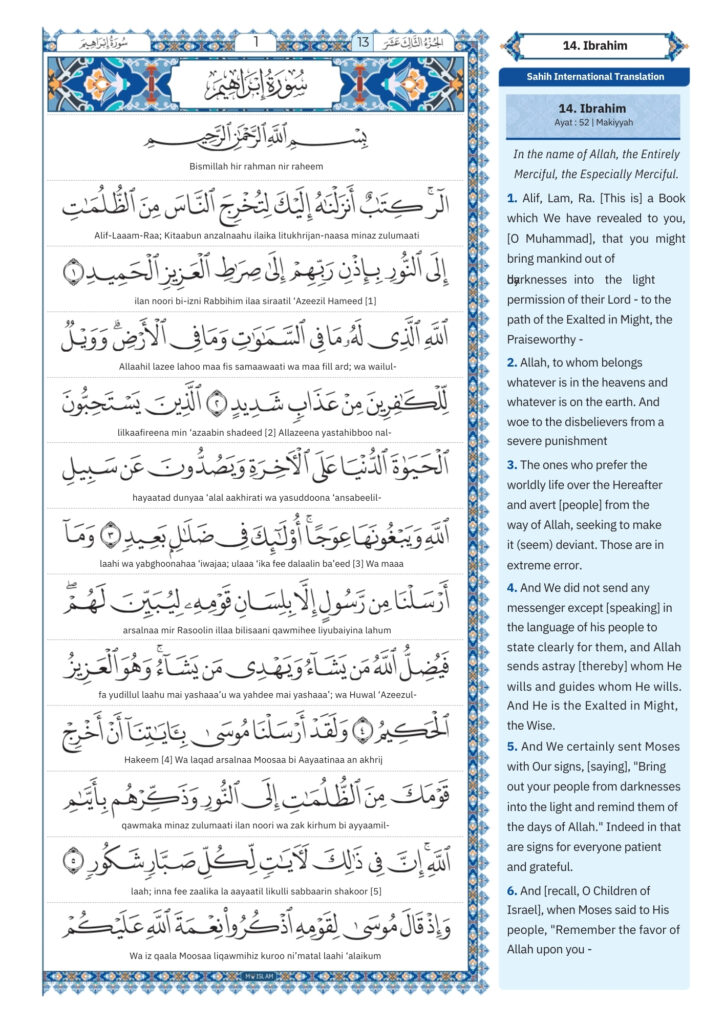 سُورَةُ إِبْرَاهِيمَ
1
13
الجُزْءُ الثَّالِثَ عَشَرَ
سُورَةُ إِبْرَاهِيمَ
بِسْمِ ٱللَّهِ ٱلرَّحْمَٰنِ ٱلرَّحِيمِ
Bismillah hir rahman nir raheem
الٓرۚ كِتَٰبٌ أَنزَلْنَٰهُ إِلَيْكَ لِتُخْرِجَ ٱلنَّاسَ مِنَ ٱلظُّلُمَٰتِ
Alif-Laaam-Raa; Kitaabun anzalnaahu ilaika litukhrijan-naasa minaz zulumaati
إِلَى ٱلنُّورِ بِإِذْنِ رَبِّهِمْ إِلَىٰ صِرَٰطِ ٱلْعَزِيزِ ٱلْحَمِيدِ ١
ilan noori bi-izni Rabbihim ilaa siraatil 'Azeezil Hameed [1]
ٱللَّهِ ٱلَّذِى لَهُۥ مَا فِى ٱلسَّمَٰوَٰتِ وَمَا فِى ٱلْأَرْضِۗ وَوَيْلٌ
Allaahil lazee lahoo maa fis samaawaati wa maa fill ard; wa wailul-
لِّلْكَٰفِرِينَ مِنْ عَذَابٍ شَدِيدٍ ٢ ٱلَّذِينَ يَسْتَحِبُّونَ
lilkaafireena min 'azaabin shadeed [2] Allazeena yastahibboo nal-
ٱلْحَيَوٰةَ ٱلدُّنْيَا عَلَى ٱلْءَاخِرَةِ وَيَصُدُّونَ عَن سَبِيلِ
hayaatad dunyaa 'alal aakhirati wa yasuddoona 'ansabeelil-
ٱللَّهِ وَيَبْغُونَهَا عِوَجًاۚ أُو۟لَٰٓئِكَ فِى ضَلَٰلٍۭ بَعِيدٍ ٣ وَمَآ
laahi wa yabghoonahaa 'iwajaa; ulaaa 'ika fee dalaalin ba'eed [3] Wa maaa
أَرْسَلْنَا مِن رَّسُولٍ إِلَّا بِلِسَانِ قَوْمِهِۦ لِيُبَيِّنَ لَهُمْۖ
arsalnaa mir Rasoolin illaa bilisaani qawmihee liyubaiyina lahum
فَيُضِلُّ ٱللَّهُ مَن يَشَآءُ وَيَهْدِى مَن يَشَآءُۚ وَهُوَ ٱلْعَزِيزُ
fa yudillul laahu mai yashaaa'u wa yahdee mai yashaaa'; wa Huwal 'Azeezul-
ٱلْحَكِيمُ ٤ وَلَقَدْ أَرْسَلْنَا مُوسَىٰ بِـَٔايَٰتِنَآ أَنْ أَخْرِجْ
Hakeem [4] Wa laqad arsalnaa Moosaa bi Aayaatinaa an akhrij
قَوْمَكَ مِنَ ٱلظُّلُمَٰتِ إِلَى ٱلنُّورِ وَذَكِّرْهُم بِأَيَّىٰمِ
qawmaka minaz zulumaati ilan noori wa zak kirhum bi ayyaamil-
ٱللَّهِۚ إِنَّ فِى ذَٰلِكَ لَءَايَٰتٍ لِّكُلِّ صَبَّارٍ شَكُورٍ ٥
laah; inna fee zaalika la aayaatil likulli sabbaarin shakoor [5]
وَإِذْ قَالَ مُوسَىٰ لِقَوْمِهِ ٱذْكُرُوا۟ نِعْمَةَ ٱللَّهِ عَلَيْكُمْ
Wa iz qaala Moosaa liqawmihiz kuroo ni'matal laahi 'alaikum
MW ISLAM
14. Ibrahim
Sahih International Translation
14. Ibrahim
Ayat : 52 | Makiyyah
In the name of Allah, the Entirely
Merciful, the Especially Merciful.
1. Alif, Lam, Ra. [This is] a Book
which We have revealed to you,
[O Muhammad], that you might
bring mankind out of
darknesses into the light by
permission of their Lord - to the
path of the Exalted in Might, the
Praiseworthy -
2. Allah, to whom belongs
whatever is in the heavens and
whatever is on the earth. And
woe to the disbelievers from a
severe punishment
3. The ones who prefer the
worldly life over the Hereafter
and avert [people] from the
way of Allah, seeking to make
it (seem) deviant. Those are in
extreme error.
4. And We did not send any
messenger except [speaking] in
the language of his people to
state clearly for them, and Allah
sends astray [thereby] whom He
wills and guides whom He wills.
And He is the Exalted in Might,
the Wise.
5. And We certainly sent Moses
with Our signs, [saying], "Bring
out your people from darknesses
into the light and remind them of
the days of Allah." Indeed in that
are signs for everyone patient
and grateful.
6. And [recall, O Children of
Israel], when Moses said to His
people, "Remember the favor of
Allah upon you -